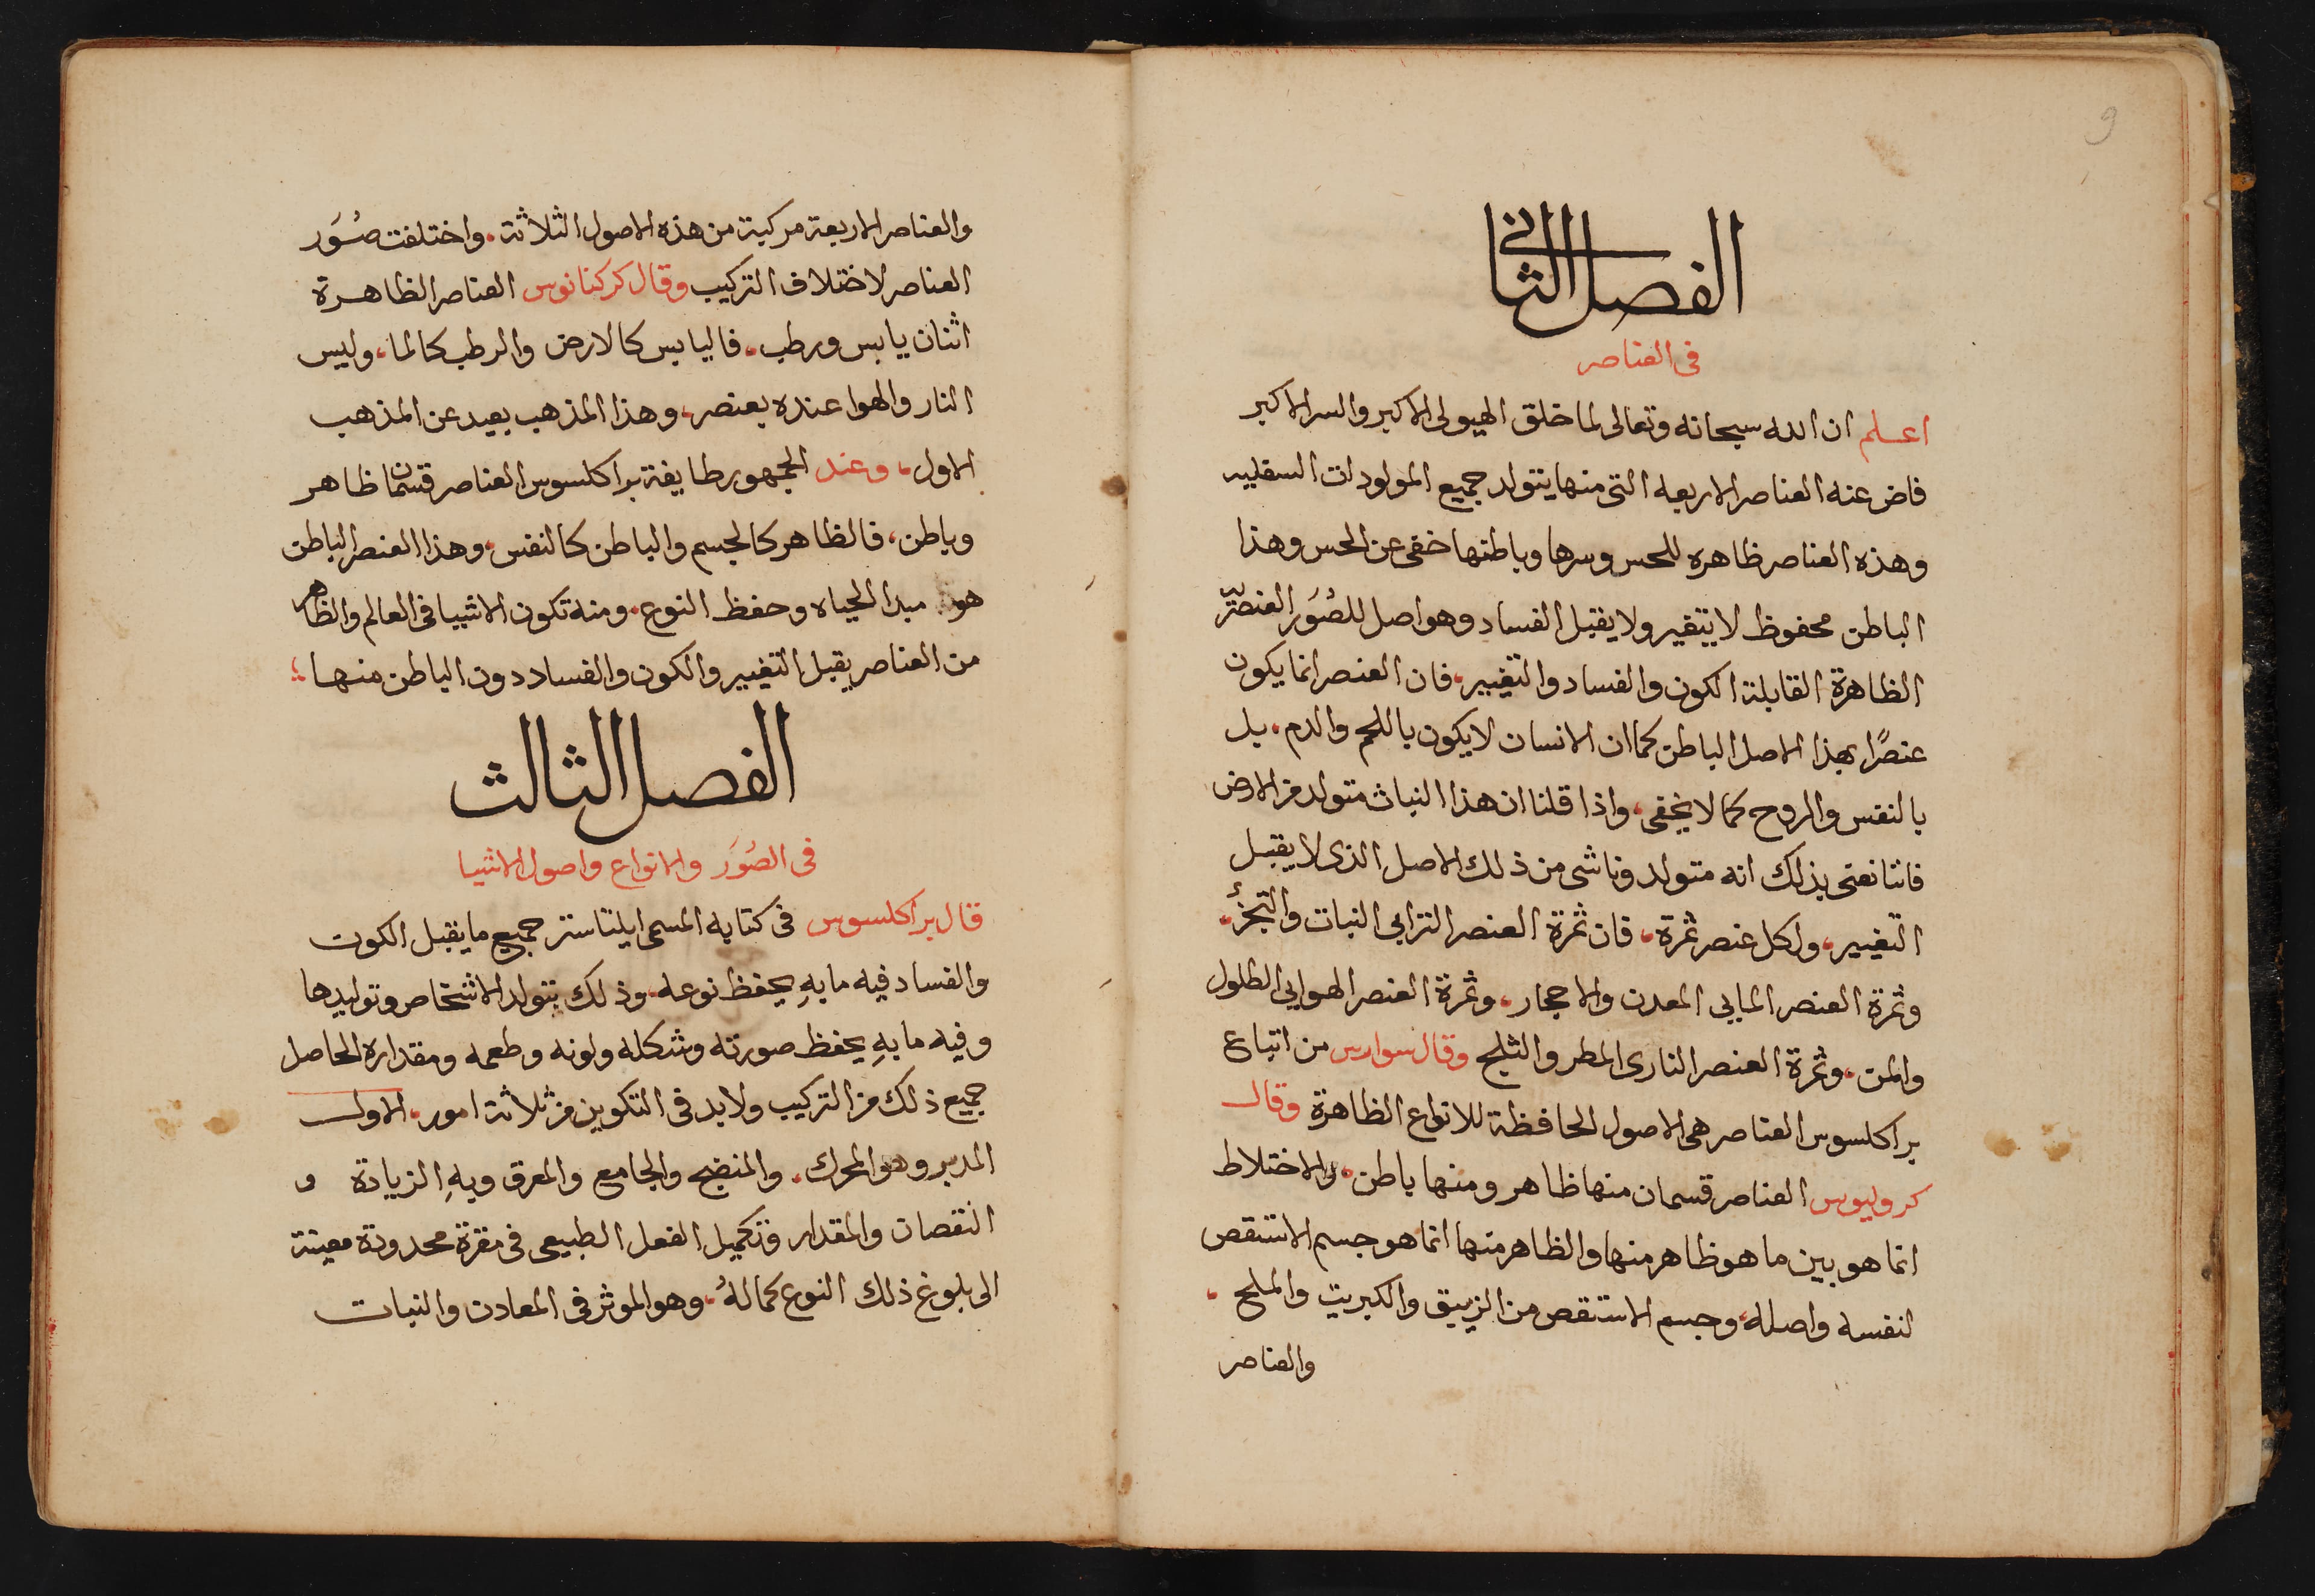 9
الفصل الثانى
فى العناصر
اعلم ان الله سبحانه وتعالى لما خلق الهيولى الاكبر والسر الاكبر
فاض عنه العناصر الاربعه التى منها يتولد جميع المولودات السفليه
وهذه العناصر ظاهره للحس وسرها وباطنها خفى عن الحس وهذا
الباطن محفوظ لا يتغير ولا يقبل الفساد وهو اصل للصُوَر العنصريّه
الظاهرة القابلة الكون والفساد والتغيير، فان العنصر انما يكون
عنصرًا بهذا الاصل الباطن كما ان الانسان لا يكون باللحم والدم. بل
بالنفس والروح كما لا يخفى، واذا قلنا ان هذا النبات متولد من الارض
فاننا نعنى بذلك انه متولد وناشى من ذلك الاصل الذى لا يقبل
التغيير، ولكل عنصر ثمرة، فان ثمرة العنصر الترابى النبات والتجزُء،
وثمرة العنصر المايى المعدن والاحجار، وثمرة العنصر الهوايى الطلول
والمن، وثمرة العنصر النارى المطر والثلج وقال سوارس من اتباع
براكلسوس العناصر هى الاصول الحافظة للانواع الظاهرة وقال
كروليوس العناصر قسمان منها ظاهر ومنها باطن، والاختلاط
انما هو بين ما هو ظاهر منها والظاهر منها انما هو جسم الاستقص
لنفسه واصله، وجسم الاستقص من الزيبق والكبريت والملح،
والعناصر
والعناصر الاربعة مركبة من هذه الاصول الثلاثة. واختلفت صُوَر
العناصر لاختلاف التركيب وقال كركنانوس العناصر الظاهرة
اثنان يابس ورطب، فاليابس كالارض والرطب كالما، وليس
النار والهوا عنده بعنصر، وهذا المذهب بعيد عن المذهب
الاول، وعند الجمهور طايفة براكلسوس العناصر قسمان ظاهر
وباطن، فالظاهر كالجسم والباطن كالنفس، وهذا العنصر الباطن
هو مبدا الحياه وحفظ النوع. ومنه تكون الاشيا فى العالم والظاهر
من العناصر يقبل التغيير والكون والفساد دون الباطن منها؛
الفصل الثالث
فى الصُوَر والانواع واصول الاشيا
قال براكلسوس فى كتابه المسمى ايلتاستر جميع ما يقبل الكون
والفساد فيه ما بهِ يحفظ نوعه. وذلك بتولد الاشخاص وتوليدها
وفيه ما بهِ يحفظ صورته وشكله ولونه وطعمه ومقداره الحاصل
جميع ذلك من التركيب ولابد فى التكوين من ثلاثة امور، الاول
المدبر وهو المحرك، والمنضج والجامع والمعرق وبهِ الزيادة و
النقصان والمقدار وتكميل الفعل الطبيعى فى مقرة محدودة معينة
الى بلوغ ذلك النوع كمالهُ، وهو الموثر فى المعادن والنبات